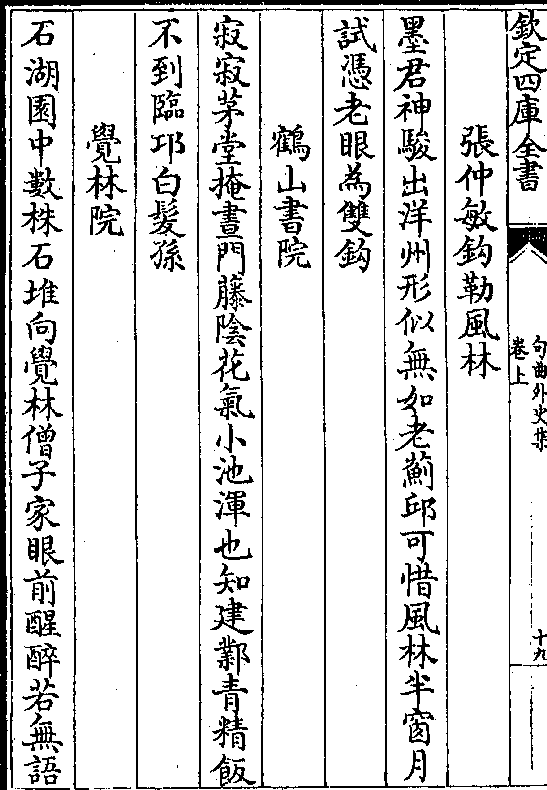 欽定四庫全書
句曲外史集
卷上
十九
張仲敏鈎勒風林
墨君神駿出洋州形似無如老薊邱可惜風林半窗月
試憑老眼為雙鈎
鶴山書院
寂寂茅堂掩晝門藤陰花氣小池渾也知建鄴青精飯
不到臨邛白髮孫
覺林院
石湖園中數株石堆向覺林僧子家眼前醒醉若無語